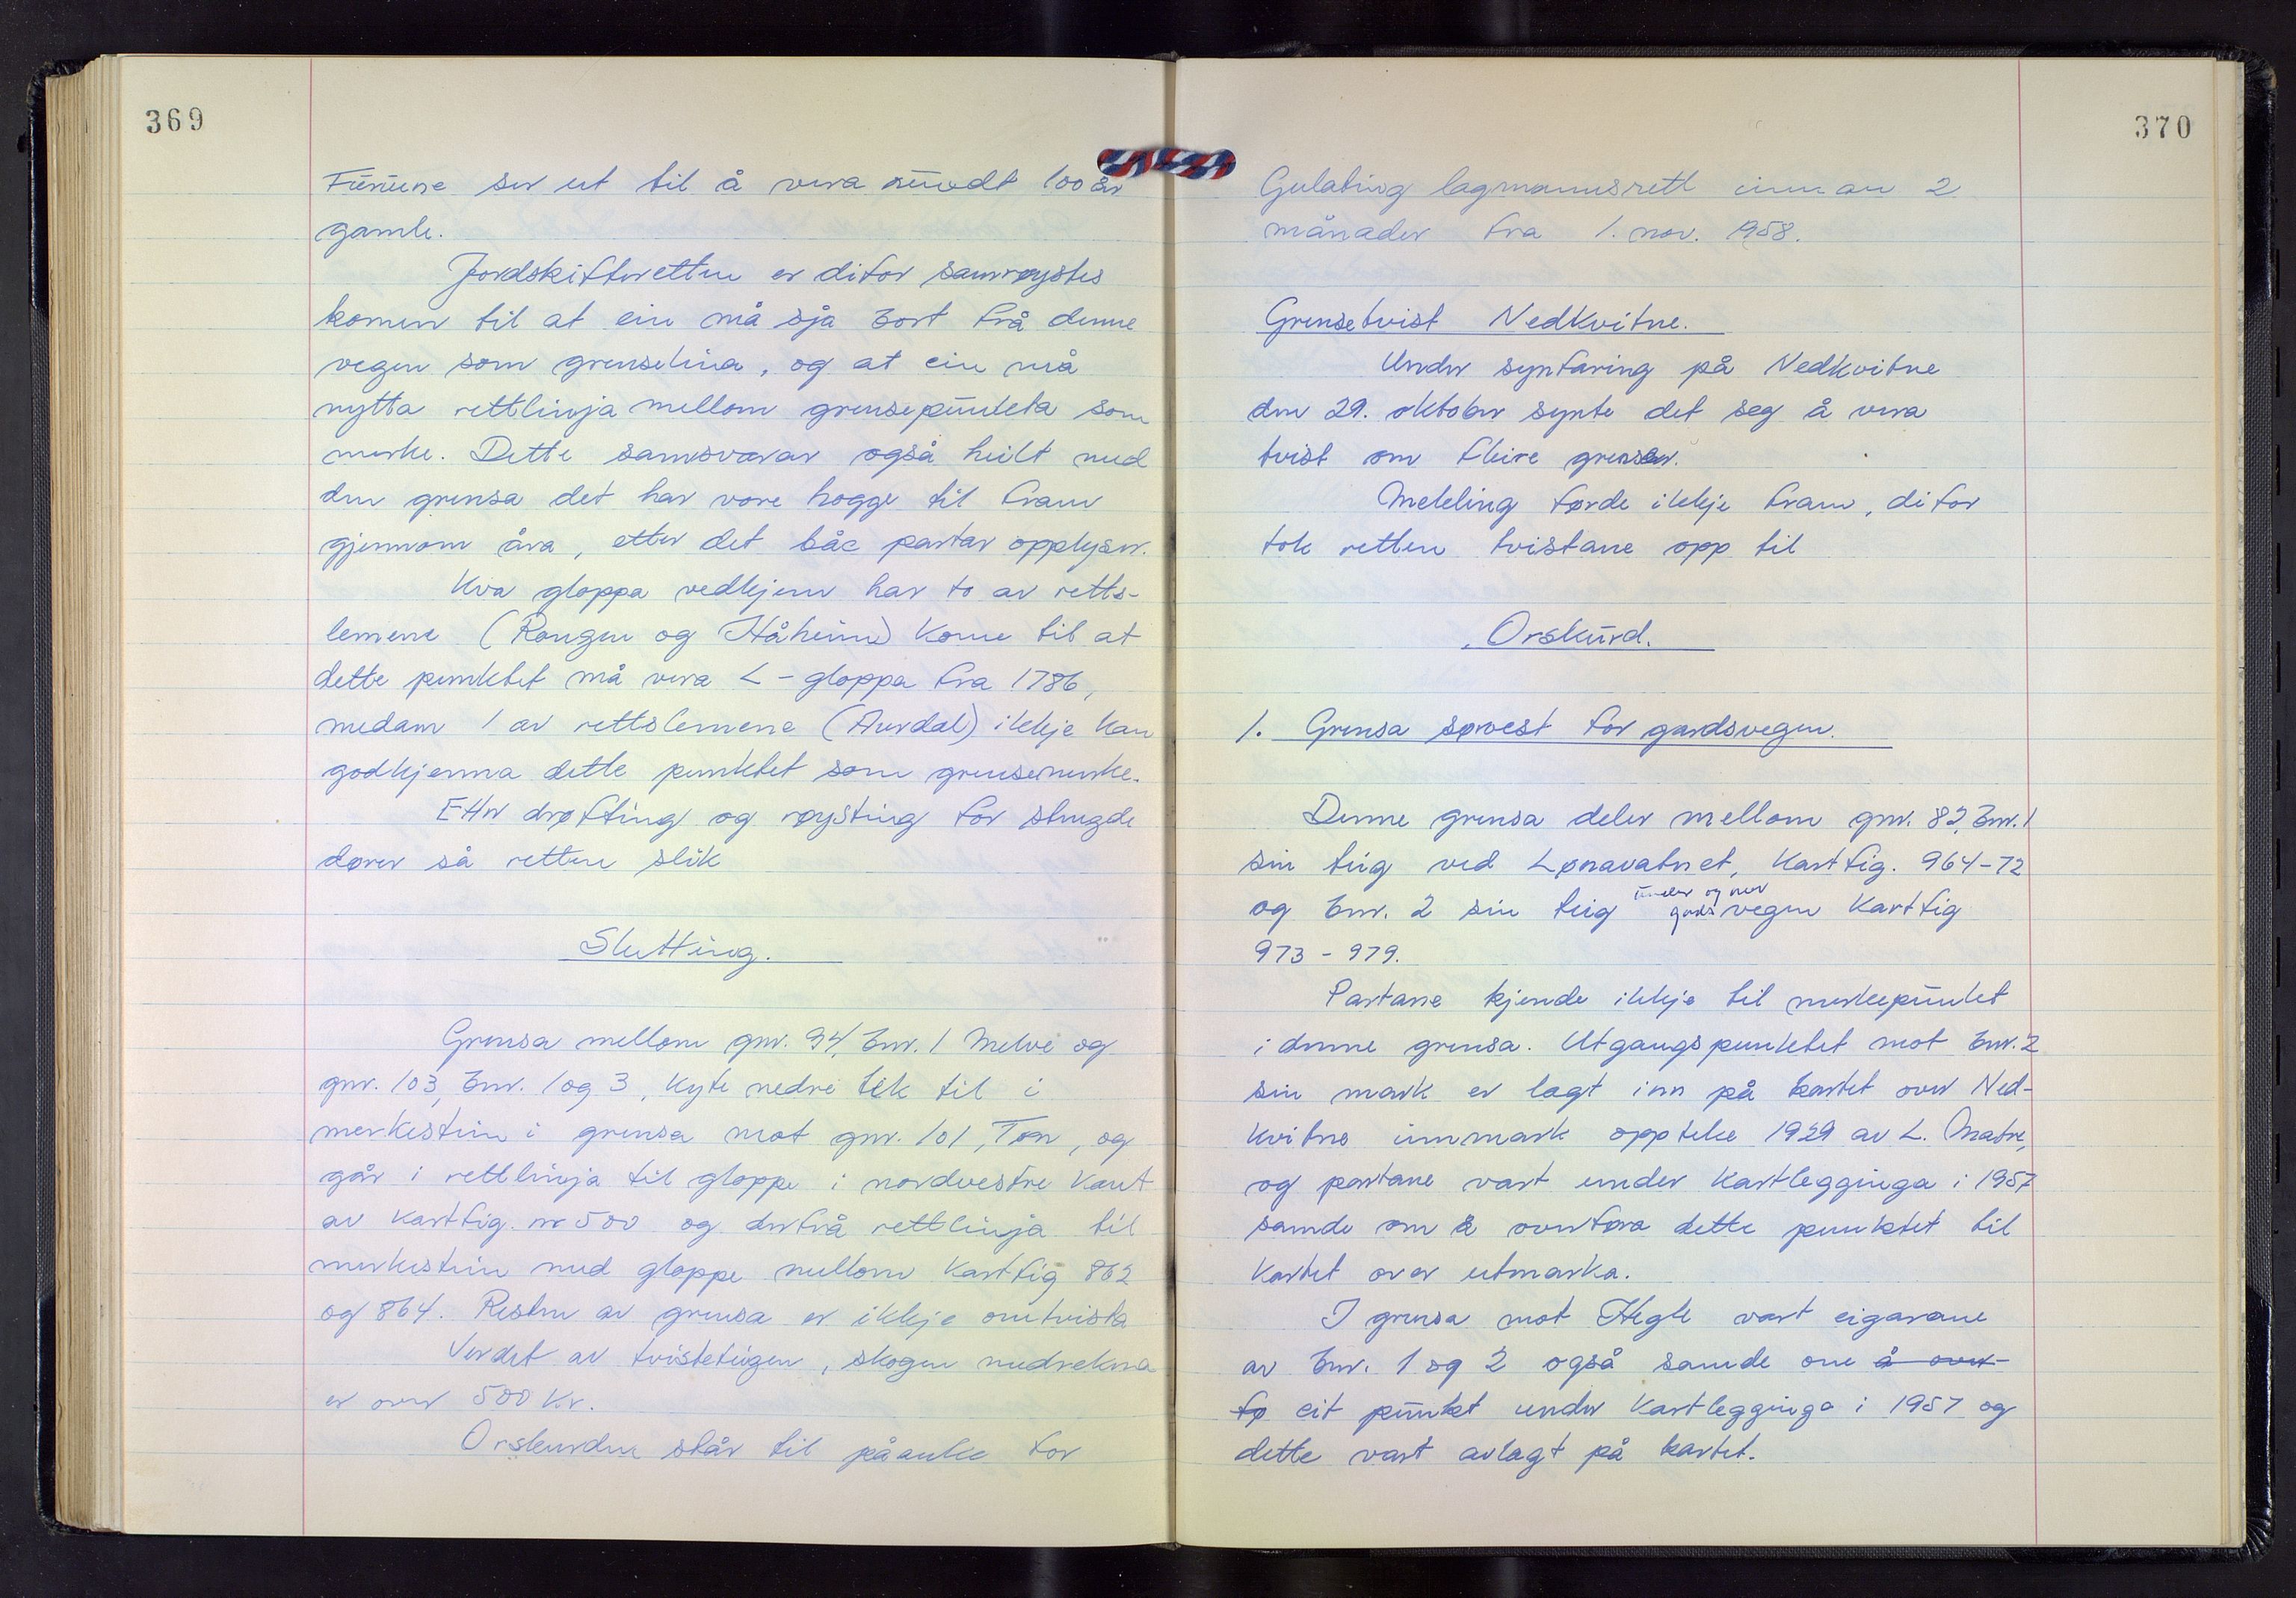 369
Furune ser ut til å vera rundt 100 år
gamle.
Jordskifteretten er difor samrøystes
komen til at ein må sjå bort frå denne
vegen som grenselina, og at ein må
nytta rettlinja mellom grensepunkta som
merke. Dette samsvarar også heilt med
den grensa det har vore hogge til fram
gjennom åra, etter det båe partar opplyser.
Kva gloppa vedkjem har to av retts-
lemene (Rongen og Håheim) kome til at
dette punktet må vera L-gloppa fra 1786,
medam 1 av rettslemene (Aurdal) ikkje kan
godkjenna dette punktet som grensemerke.
Etter drøfting og røysting for stengde
dører så retten slik
Slutting.
Grensa mellom gnr. 94, bnr. 1 Melve og
gnr. 103, bnr. 1 og 3, Kyte nedre tek til i
merkestein i grensa mot gnr. 101, Tøn, og
går i rettlinja til gloppe i nordvestre kant
av kartfig. nr 500 og derfrå rettlinja til
merkestein med gloppe mellom kartfig 862
og 864. Resten av grensa er ikkje omtvista
Verdet av tvisteteigen, skogen medrekna
er over 500 kr.
Orskurden står til påanke for
370
Gulating lagmannsrett innan 2
månader fra 1. nov. 1958.
Grensetvist Nedkvitne.
Under synfaring på Nedkvitne
den 29. oktober synte det seg å vera
tvist om fleire grenser.
Mekling førde ikkje fram, difor
tok retten tvistane opp til
Orskurd.
1. Grensa sørvest for gardsvegen.
Denne grensa deler mellom gnr. 82, bnr. 1
sin teig ved Lønavatnet, Kartfig. 964-72
og bnr. 2 sin teig under og ner gardsvegen Kartfig
973 - 979.
Partane kjende ikkje til merkepunktet
i denne grensa. Utgangspunktet mot bnr. 2
sin mark er lagt inn på kartet over Ned-
kvitne innmark oppteke 1929 av L. Matre,
og partane vart under kartlegginga i 1957
samde om å overføra dette punktet til
kartet over utmarka.
I grensa mot Hegle vart eigarane
av bnr. 1 og 2 også samde om å over-
fø eit punkt under kartlegginga i 1957 og
dette vart avlagt på kartet.